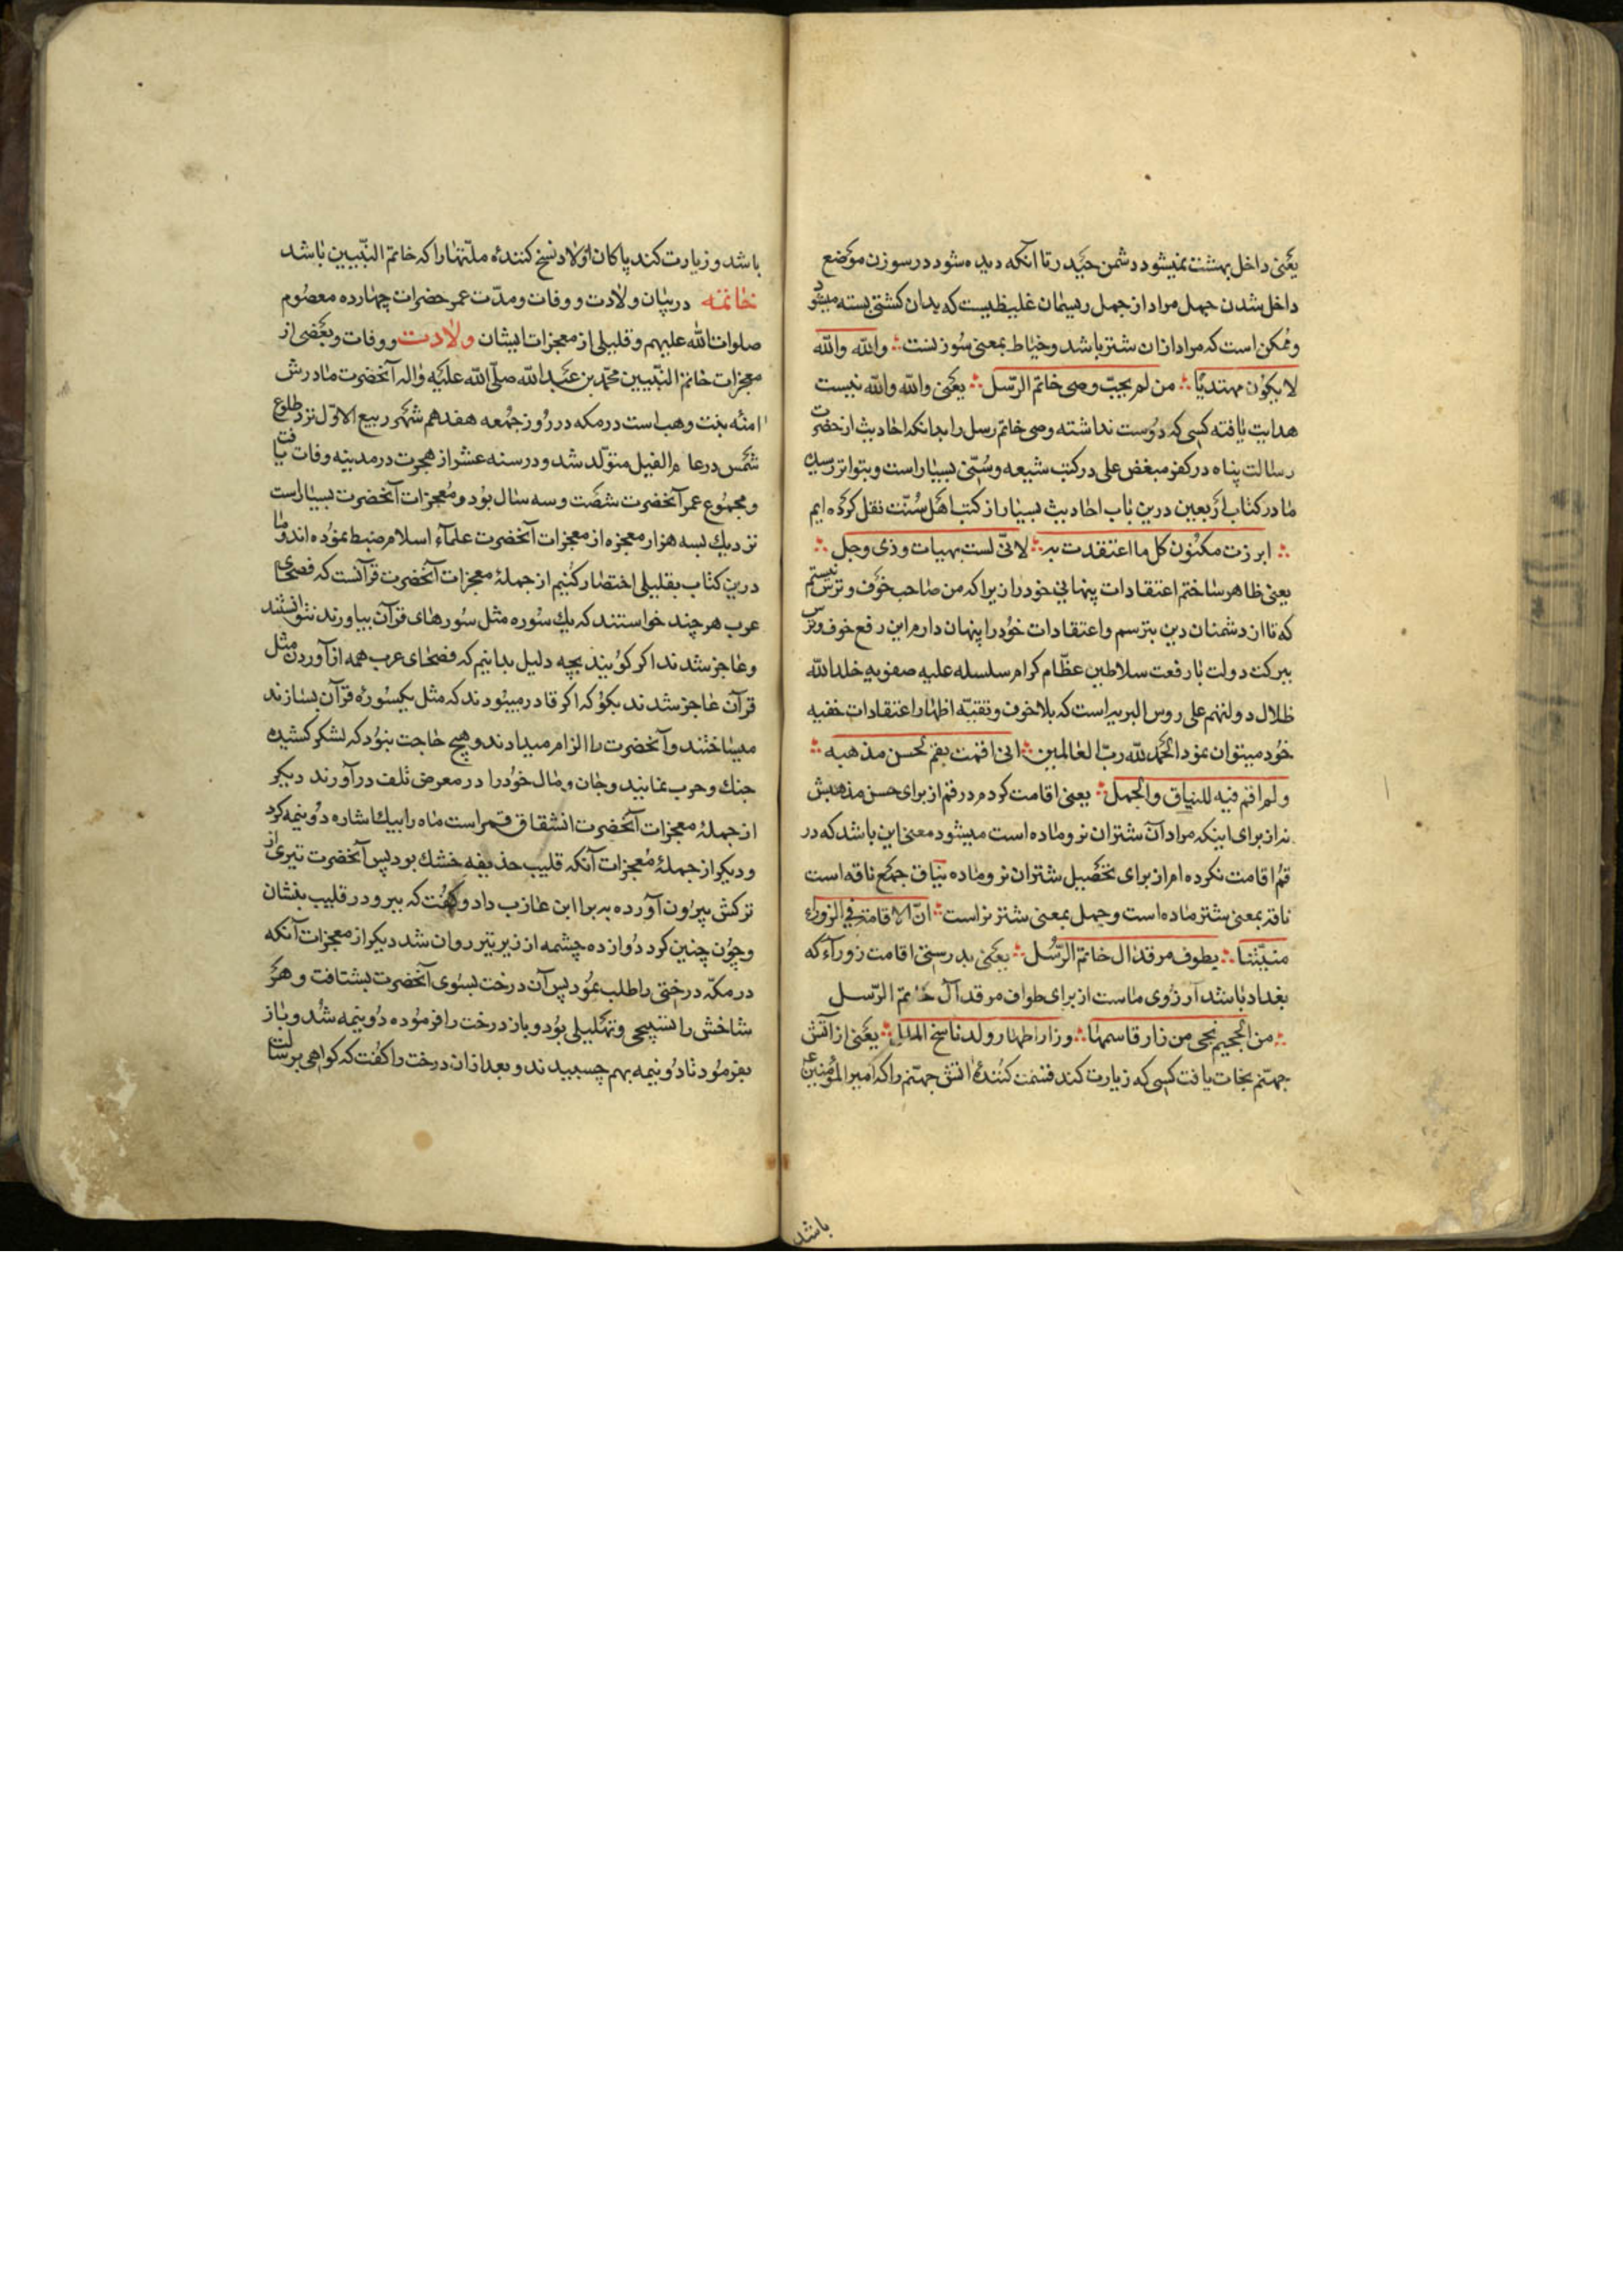 یعنی داخل بهشت نمیشود دشمن حیدر تا آنکه دیده شود در سوزن موضع
داخل شدن جمل مراد از جمل ریسمان غلیظیست که بدان کشتی بسته میشود
و ممکن است که مراد از ان شتر باشد و خیاط بمعنی سوزنست والله والله
لا یکون مهتدیا من لم یحب وصی خاتم الرسل یعنی والله والله نیست
هدایت یافته کسی که دوست نداشته وصی خاتم رسل را بدانکه احادیث از حضرت
رسالت پناه در کفر مبغض علی در کتب شیعه و سنی بسیار است و بتواتر رسیده
ما در کتاب اربعین درین باب احادیث بسیار از کتب اهل سنت نقل کرده ایم
ابرزت مکنون کل ما اعتقدت به لانی لست بهیات وذی وجل
یعنی ظاهر ساختم اعتقادات پنهانی خود را زیرا که من صاحب خوف و ترس نیستم
که تا از دشمنان دین بترسم و اعتقادات خود را پنهان دارم این رفع خوف و ترس
ببرکت دولت با رفعت سلاطین عظام کرام سلسله علیه صفویه خلد الله
ظلال دولتهم علی روس البریه است که بلا خوف و تقیه اظهار اعتقادات خفیه
خود میتوان نمود الحمد لله رب العالمین انی اقمت بقم لحسن مذهبه
ولم اقم فیه للنیاق والجمل یعنی اقامت کردم در قم از برای حسن مذهبش
نه از برای اینکه مراد آن شتران نر و ماده است میشود معنی این باشد که در
قم اقامت نکرده ام از برای تحصیل شتران نر و ماده نیاق جمع ناقه است
ناقه بمعنی شتر ماده است و جمل بمعنی شتر نر است ان الاقامة فی الزوراء
منیتنا یطوف مرقد ال خاتم الرسل یعنی بدرستی اقامت زوراء که
بغداد باشد آرزوی ماست از برای طواف مرقد آل خاتم الرسل
من الجحیم نجی من زار قاسمها وزار اطهار ولد ناسخ الملل یعنی از آتش
جهنم نجات یافت کسی که زیارت کند قسمت کنندهٔ اتش جهنم را که امیر المؤمنین
باشد
باشد و زیارت کند پاکان اولاد نسخ کنندهٔ ملتها را که خاتم النبیین باشد
خاتمه در بیان ولادت و وفات و مدت عمر حضرات چهارده معصوم
صلوات الله علیهم و قلیلی از معجزات ایشان ولادت و وفات و بعضی از
معجزات خاتم النبیین محمد بن عبد الله صلی الله علیه واله آنحضرت مادرش
امنه بنت وهب است در مکه در روز جمعه هفدهم شهر ربیع الاول نزد طلوع
شمس در عام الفیل متولد شد و در سنه عشر از هجرت در مدینه وفات یافت
و مجموع عمر آنحضرت شصت و سه سال بود و معجزات آنحضرت بسیار است
نزدیک بسه هزار معجزه از معجزات آنحضرت علماء اسلام ضبط نموده اند و ما
درین کتاب بقلیلی اختصار کنیم از جملهٔ معجزات آنحضرت قرآنست که فصحای
عرب هر چند خواستند که یك سوره مثل سورهای قرآن بیاورند نتوانستند
و عاجز شدند اکر کویند بچه دلیل بدانیم که فصحای عرب همه از آوردن مثل
قرآن عاجز شدند بکو که اکر قادر میبودند که مثل یکسورهٔ قرآن بسازند
میساختند و آنحضرت را الزام میدادند و هیچ حاجت نبود که لشکر کشیده
جنك و حرب نمایند و جان و مال خود را در معرض تلف در آورند دیکر
از جملهٔ معجزات آنحضرت انشقاق قمر است ماه را بیك اشاره دو نیمه کرد
و دیکر از جملهٔ معجزات آنکه قلیب حذیفه خشك بود پس آنحضرت تیری از
ترکش بیرون آورده به برا ابن عازب داد و کفت که ببر و در قلیب بنشان
و چون چنین کرد دوازده چشمه از زیر تیر روان شد دیکر از معجزات آنکه
در مکه درختی را طلب نمود پس آن درخت بسوی آنحضرت بشتافت و هر
شاخش را تسبیحی و تهلیلی بود و باز درخت را فرموده دو نیمه شد و باز
بفرمود تا دو نیمه بهم چسبیدند و بعد از ان درخت را کفت که کواهی برسالت